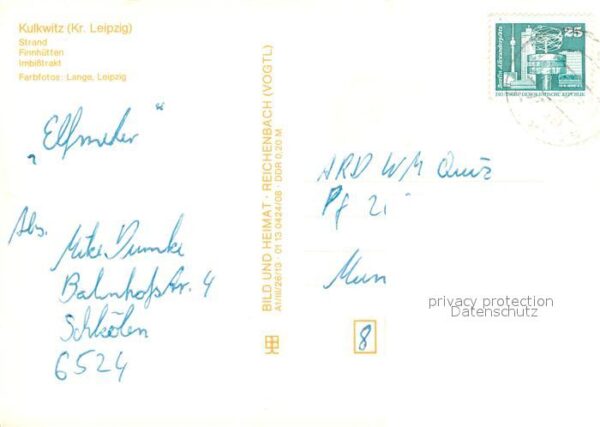 Kulkwitz (Kr. Leipzig)
Strand
Finnhütten
Imbißtrakt
Farbfotos: Lange, Leipzig
„Elfmeter“
Abs.
Mike Dumke
Bahnhofstr. 4
Schkölen
6524
BILD UND HEIMAT · REICHENBACH (VOGTL)
A1/III/26/13 · 01 13 0424/08 · DDR 0,20 M
25
Berlin, Alexanderplatz
DEUTSCHE DEMOKRATISCHE REPUBLIK
ARD WM Quiz
Pf 21
Mün
privacy protection
Datenschutz
8